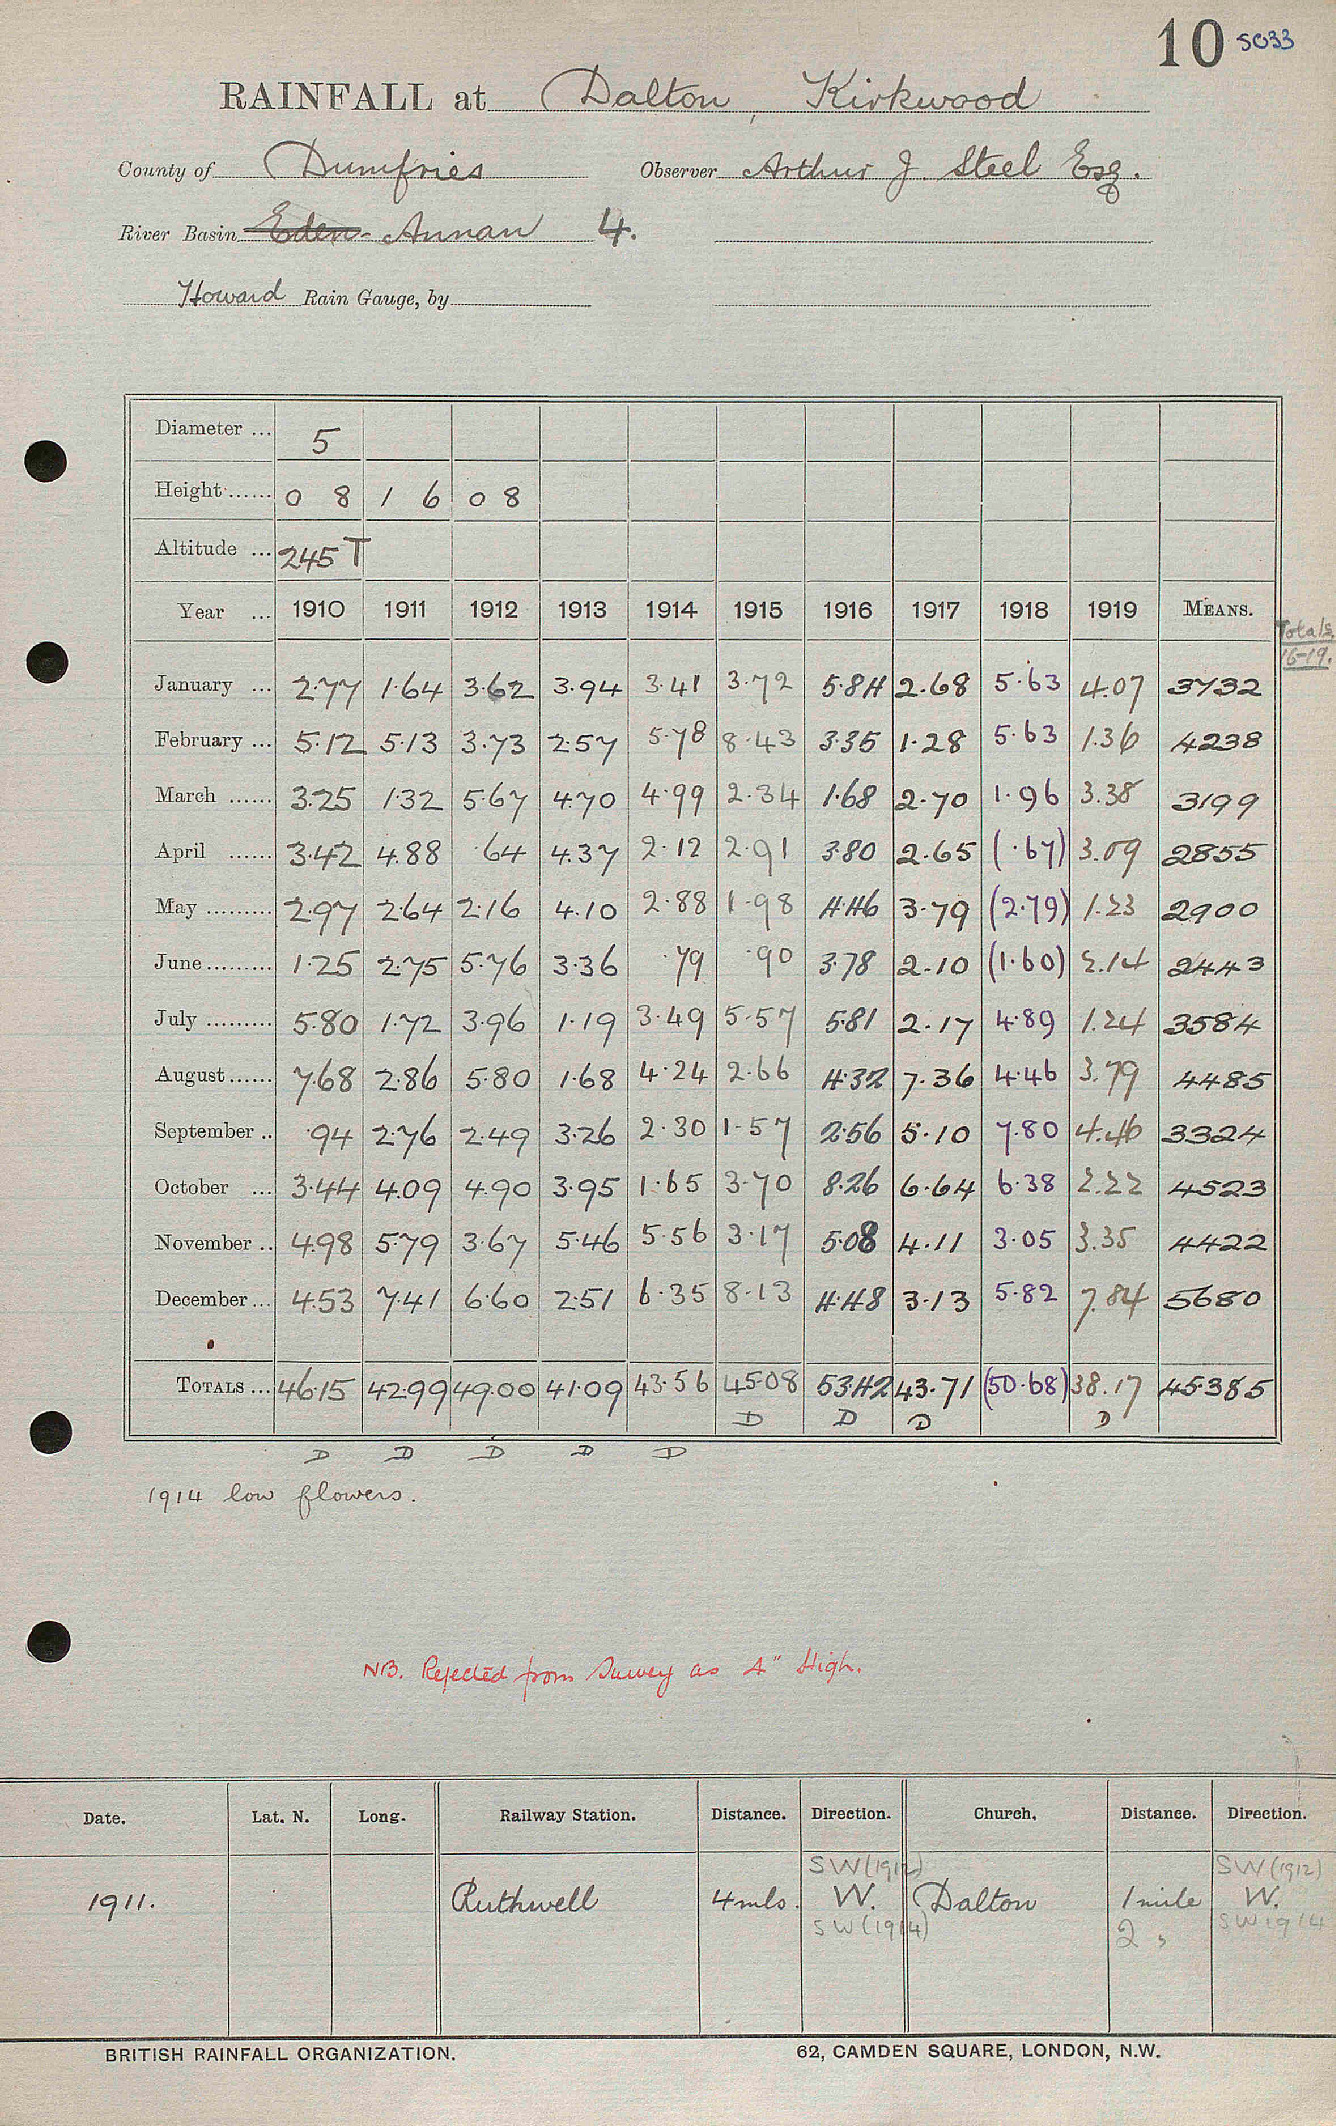 10 5033
RAINFALL at Dalton, Kirkwood
County of Dumfries Observer Arthur J. Steel Esq.
River Basin Eden Annan 4.
Howard Rain Gauge, by
Diameter ... 5
Height ...... 0 8 1 6 0 8
Altitude ... 245 T
Year ... 1910 1911 1912 1913 1914 1915 1916 1917 1918 1919 MEANS. Totals 16-19.
January ... 2.77 1.64 3.62 3.94 3.41 3.72 5.84 2.68 5.63 4.07 3732
February ... 5.12 5.13 3.73 2.57 5.78 8.43 3.35 1.28 5.63 1.36 4238
March ...... 3.25 1.32 5.67 4.70 4.99 2.34 1.68 2.70 1.96 3.38 3199
April ...... 3.42 4.88 .64 4.37 2.12 2.91 3.80 2.65 (.67) 3.09 2855
May ......... 2.97 2.64 2.16 4.10 2.88 1.98 4.46 3.79 (2.79) 1.23 2900
June ......... 1.25 2.75 5.76 3.36 .79 .90 3.78 2.10 (1.60) 2.14 2443
July ......... 5.80 1.72 3.96 1.19 3.49 5.57 5.81 2.17 4.89 1.24 3584
August ...... 7.68 2.86 5.80 1.68 4.24 2.66 4.32 7.36 4.46 3.79 4485
September .. .94 2.76 2.49 3.26 2.30 1.57 2.56 5.10 7.80 4.46 3324
October ... 3.44 4.09 4.90 3.95 1.65 3.70 8.26 6.64 6.38 2.22 4523
November .. 4.98 5.79 3.67 5.46 5.56 3.17 5.08 4.11 3.05 3.35 4422
December ... 4.53 7.41 6.60 2.51 6.35 8.13 4.48 3.13 5.82 7.84 5680
TOTALS ... 46.15 42.99 49.00 41.09 43.56 45.08 53.42 43.71 (50.68) 38.17 45385
D D D D
D D D D D
1914 low flowers.
NB. Rejected from Survey as 4" High.
Date. Lat. N. Long. Railway Station. Distance. Direction. Church. Distance. Direction.
SW (1912) SW (1912)
1911. Ruthwell 4 mls. W. Dalton 1 mile W.
SW (1914) 2 " SW 1914
BRITISH RAINFALL ORGANIZATION. 62, CAMDEN SQUARE, LONDON, N.W.